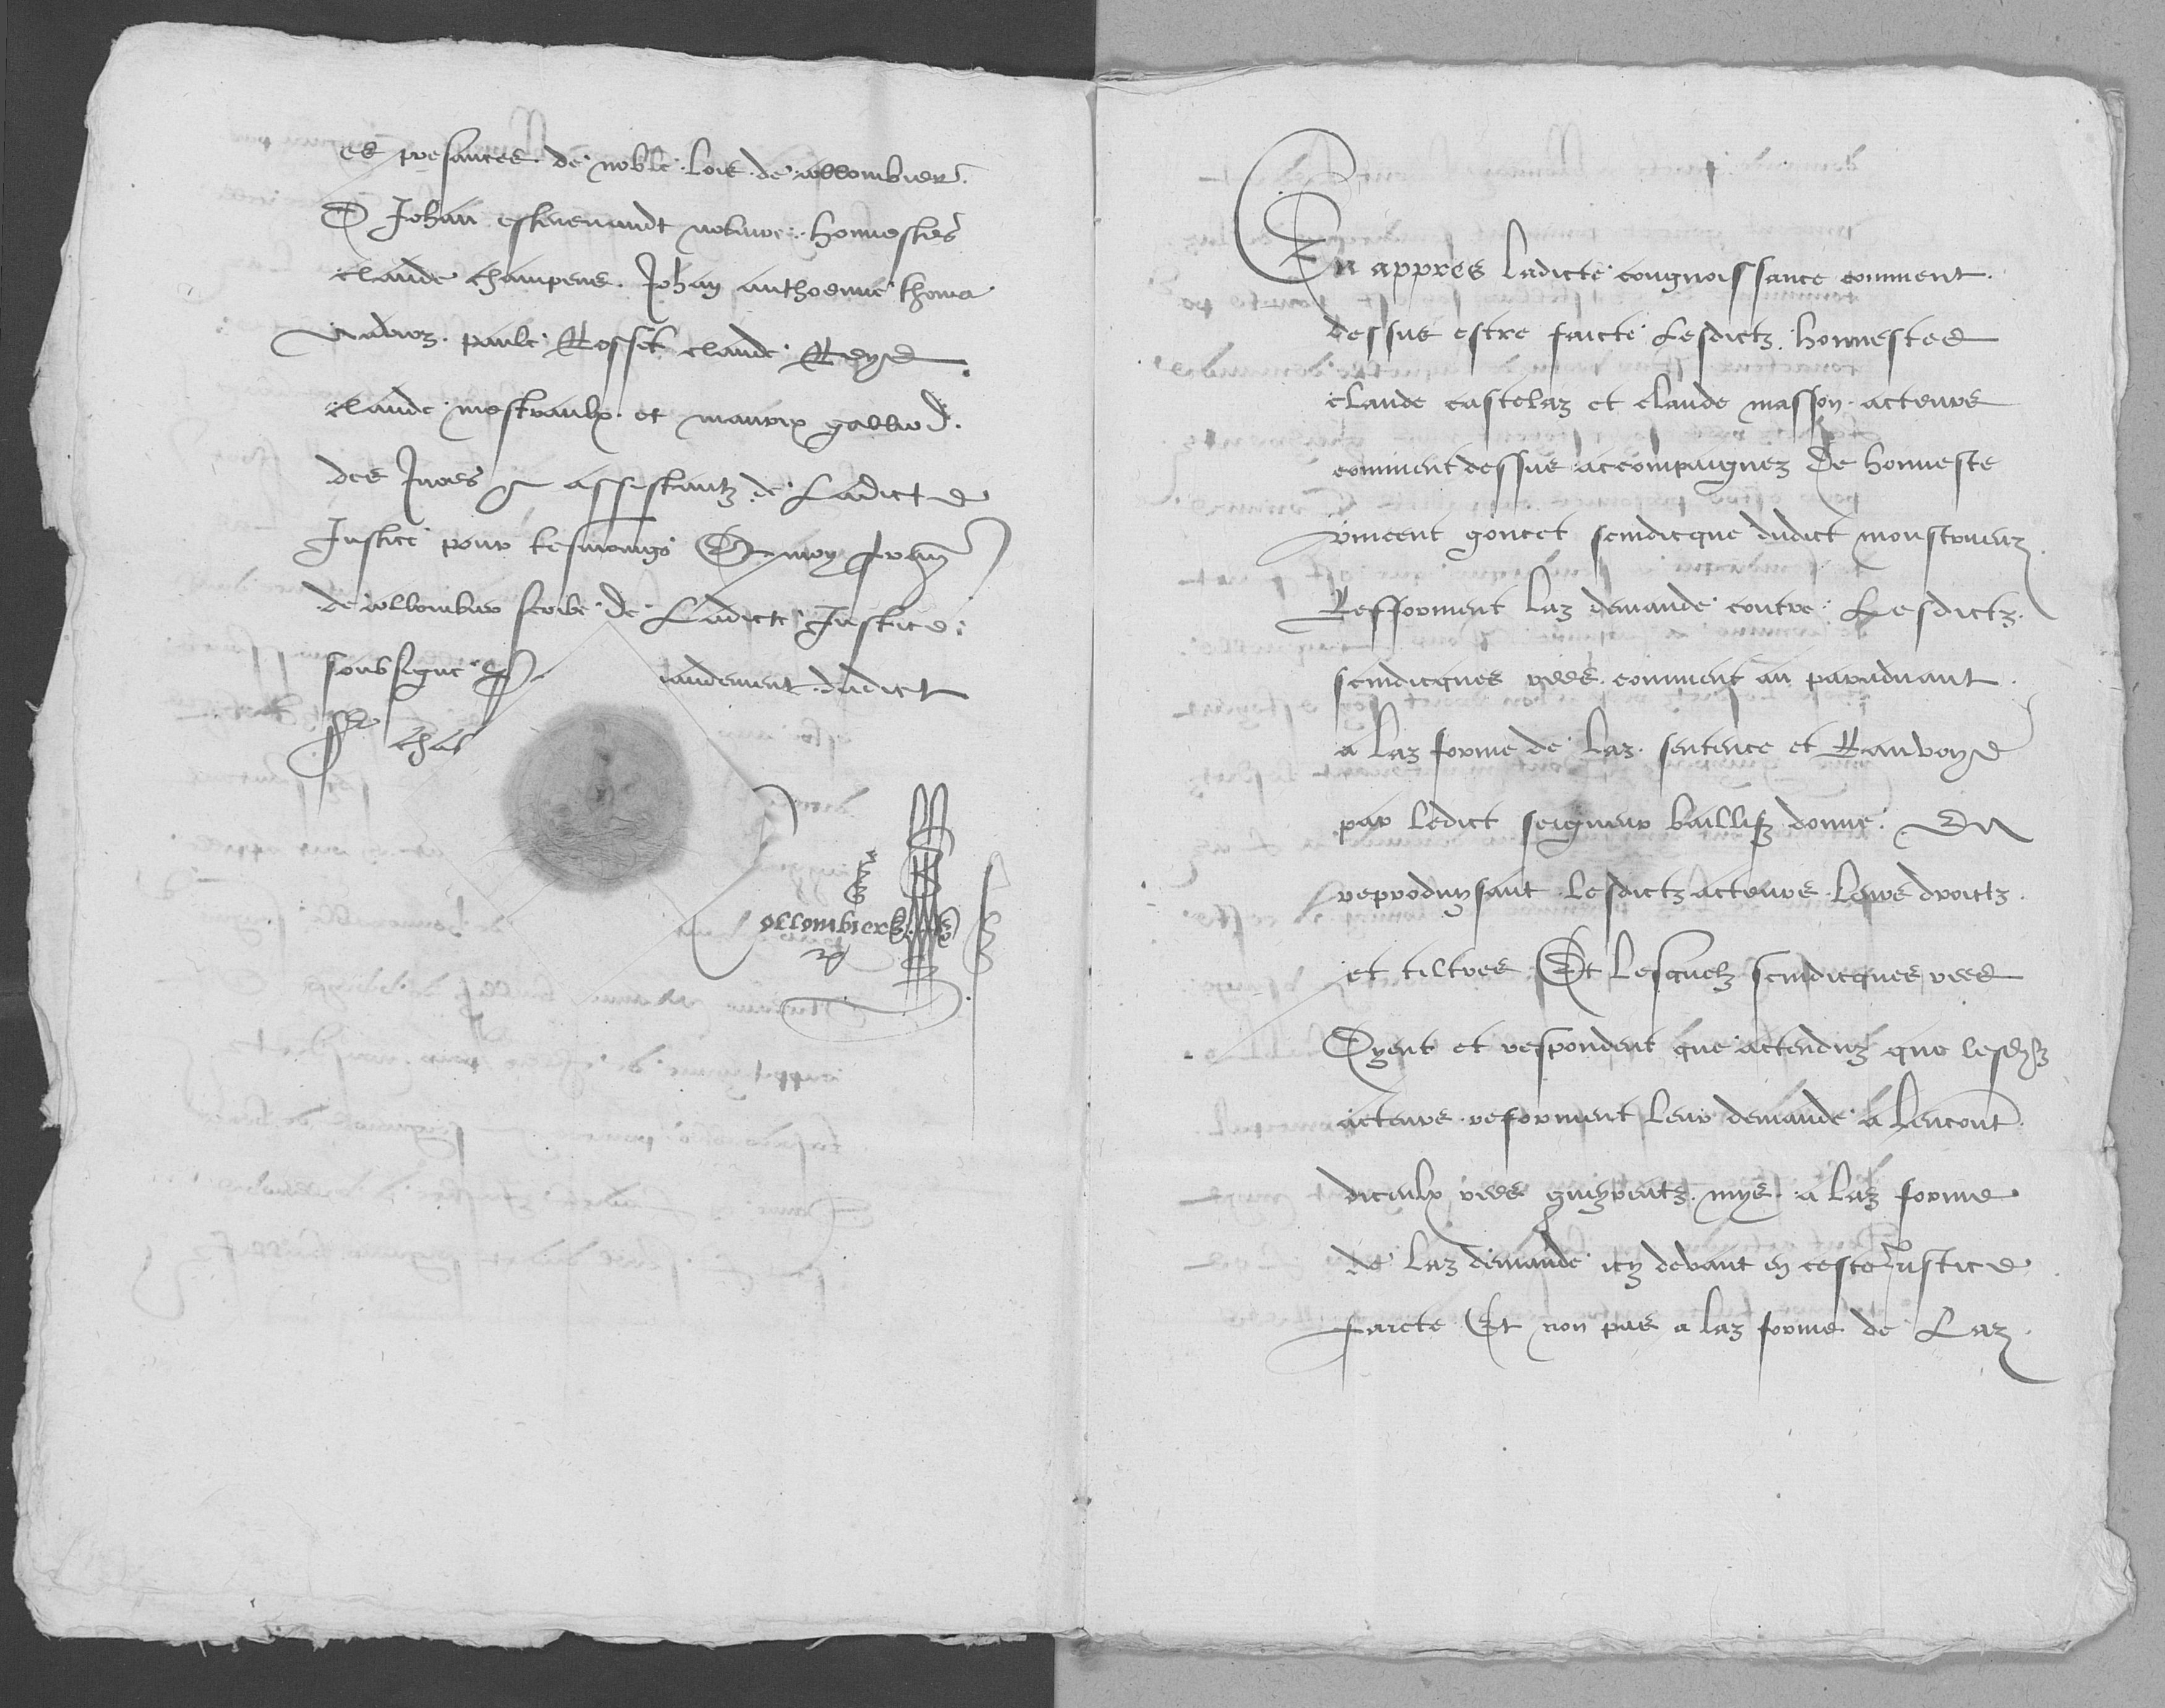 es presances de noble lois de collombier
D Johan estevenandt notaire honnestes
claude champens Johan anthoenne thoma
paule Rosset claude Reyd
claude mestraulx et maurix gallied
des Jures assestantz de Ladicte
Justice pour tesmoings Et moy
de collombier scribe de Ladicte Justice
soubsigne mandement dudict
Sr chast
Collombier
En appres ladicte congnoissance comment
dessus estre faicte Lesdictz honnestes
claude castelaz et claude masson acteurs
comment dessus accompaignez De honneste
vincent goncet scindicque dudict monstruenz
Refforment laz demande contre Lesdictz
scindicques rees comment au paraduant
a laz forme de laz sentence et Ranvoye
par ledict seigneur baillifz donne En
reproduysant lesdictz acteurs leurs droictz
et tiltres Et lesquelz scindicques rees
Dyent et respondent que actenduz que lesdictz
acteurs reforment leur demande a lencontr
diceulx rees mys a laz forme
de laz demande icy devant en ceste Justice
faicte Et non pas a laz forme de Laz